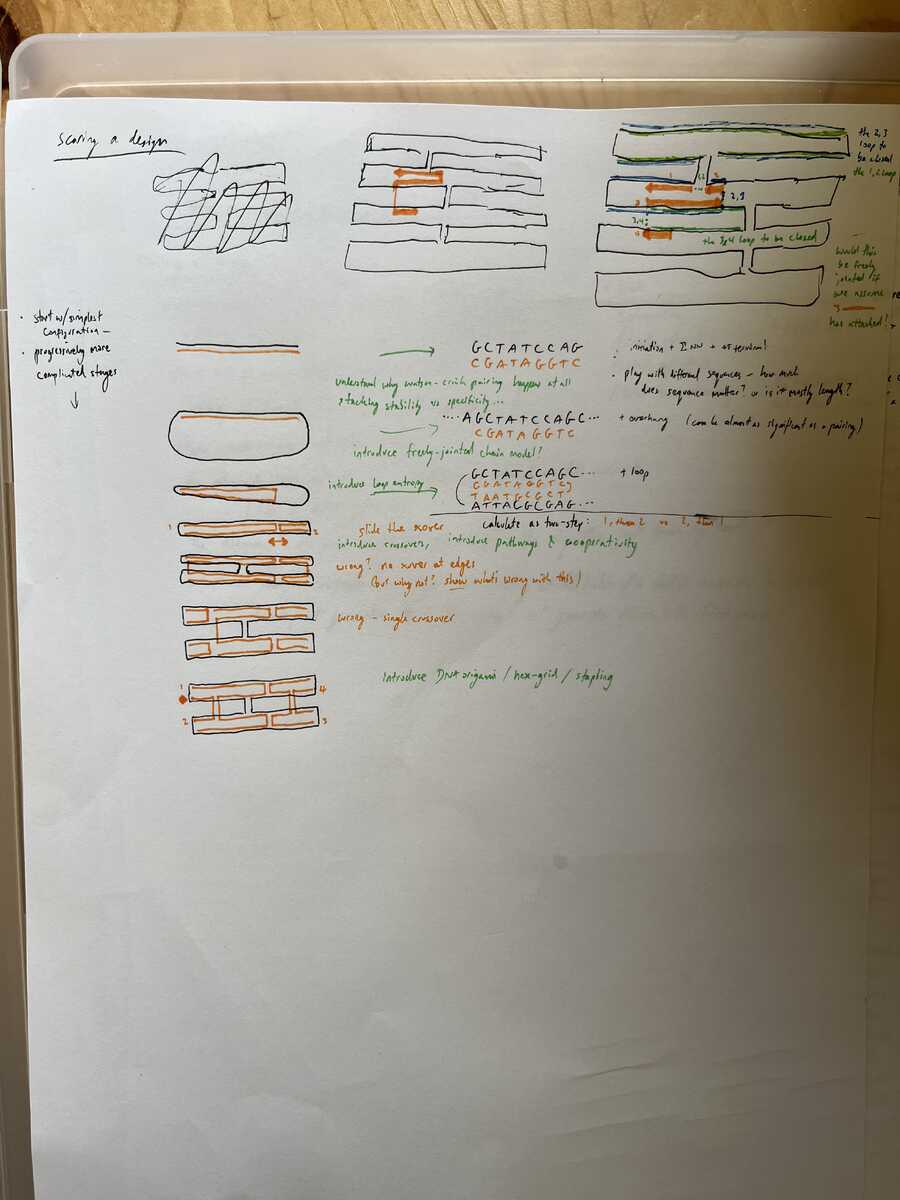 Scoring a design
the 2,3
loop to
be closed
the 1,2 loop
1
1,2
2
3
2,3
3,4
4
the 3&4 loop to be closed
would this
be freely
jointed if
we assume
3
has attached!
· start w/ simplest
configuration –
· progressively more
complicated stages
GCTATCCAG
CGATAGGTC
initiation + Σ NN + AT terminal
understand why watson-crick pairing happens at all
stacking stability vs specificity...
· play with different sequences – how much
does sequence matter? or is it mostly length?
.... AGCTATCCAGC...
CGATAGGTC
+ overhang (can be almost as significant as a pairing)
introduce freely-jointed chain model?
introduce loop entropy
GCTATCCAGC...
CGATAGGTC
TAATGCGCT
ATTACGCGAG...
+ loop
calculate as two-step: 1, then 2 vs 2, then 1
1
2
slide the xover
introduce crossovers, introduce pathways & cooperativity
wrong? no xover at edges
(but why not? show what's wrong with this)
wrong – single crossover
1
4
2
3
introduce DNA origami / hex-grid / stapling